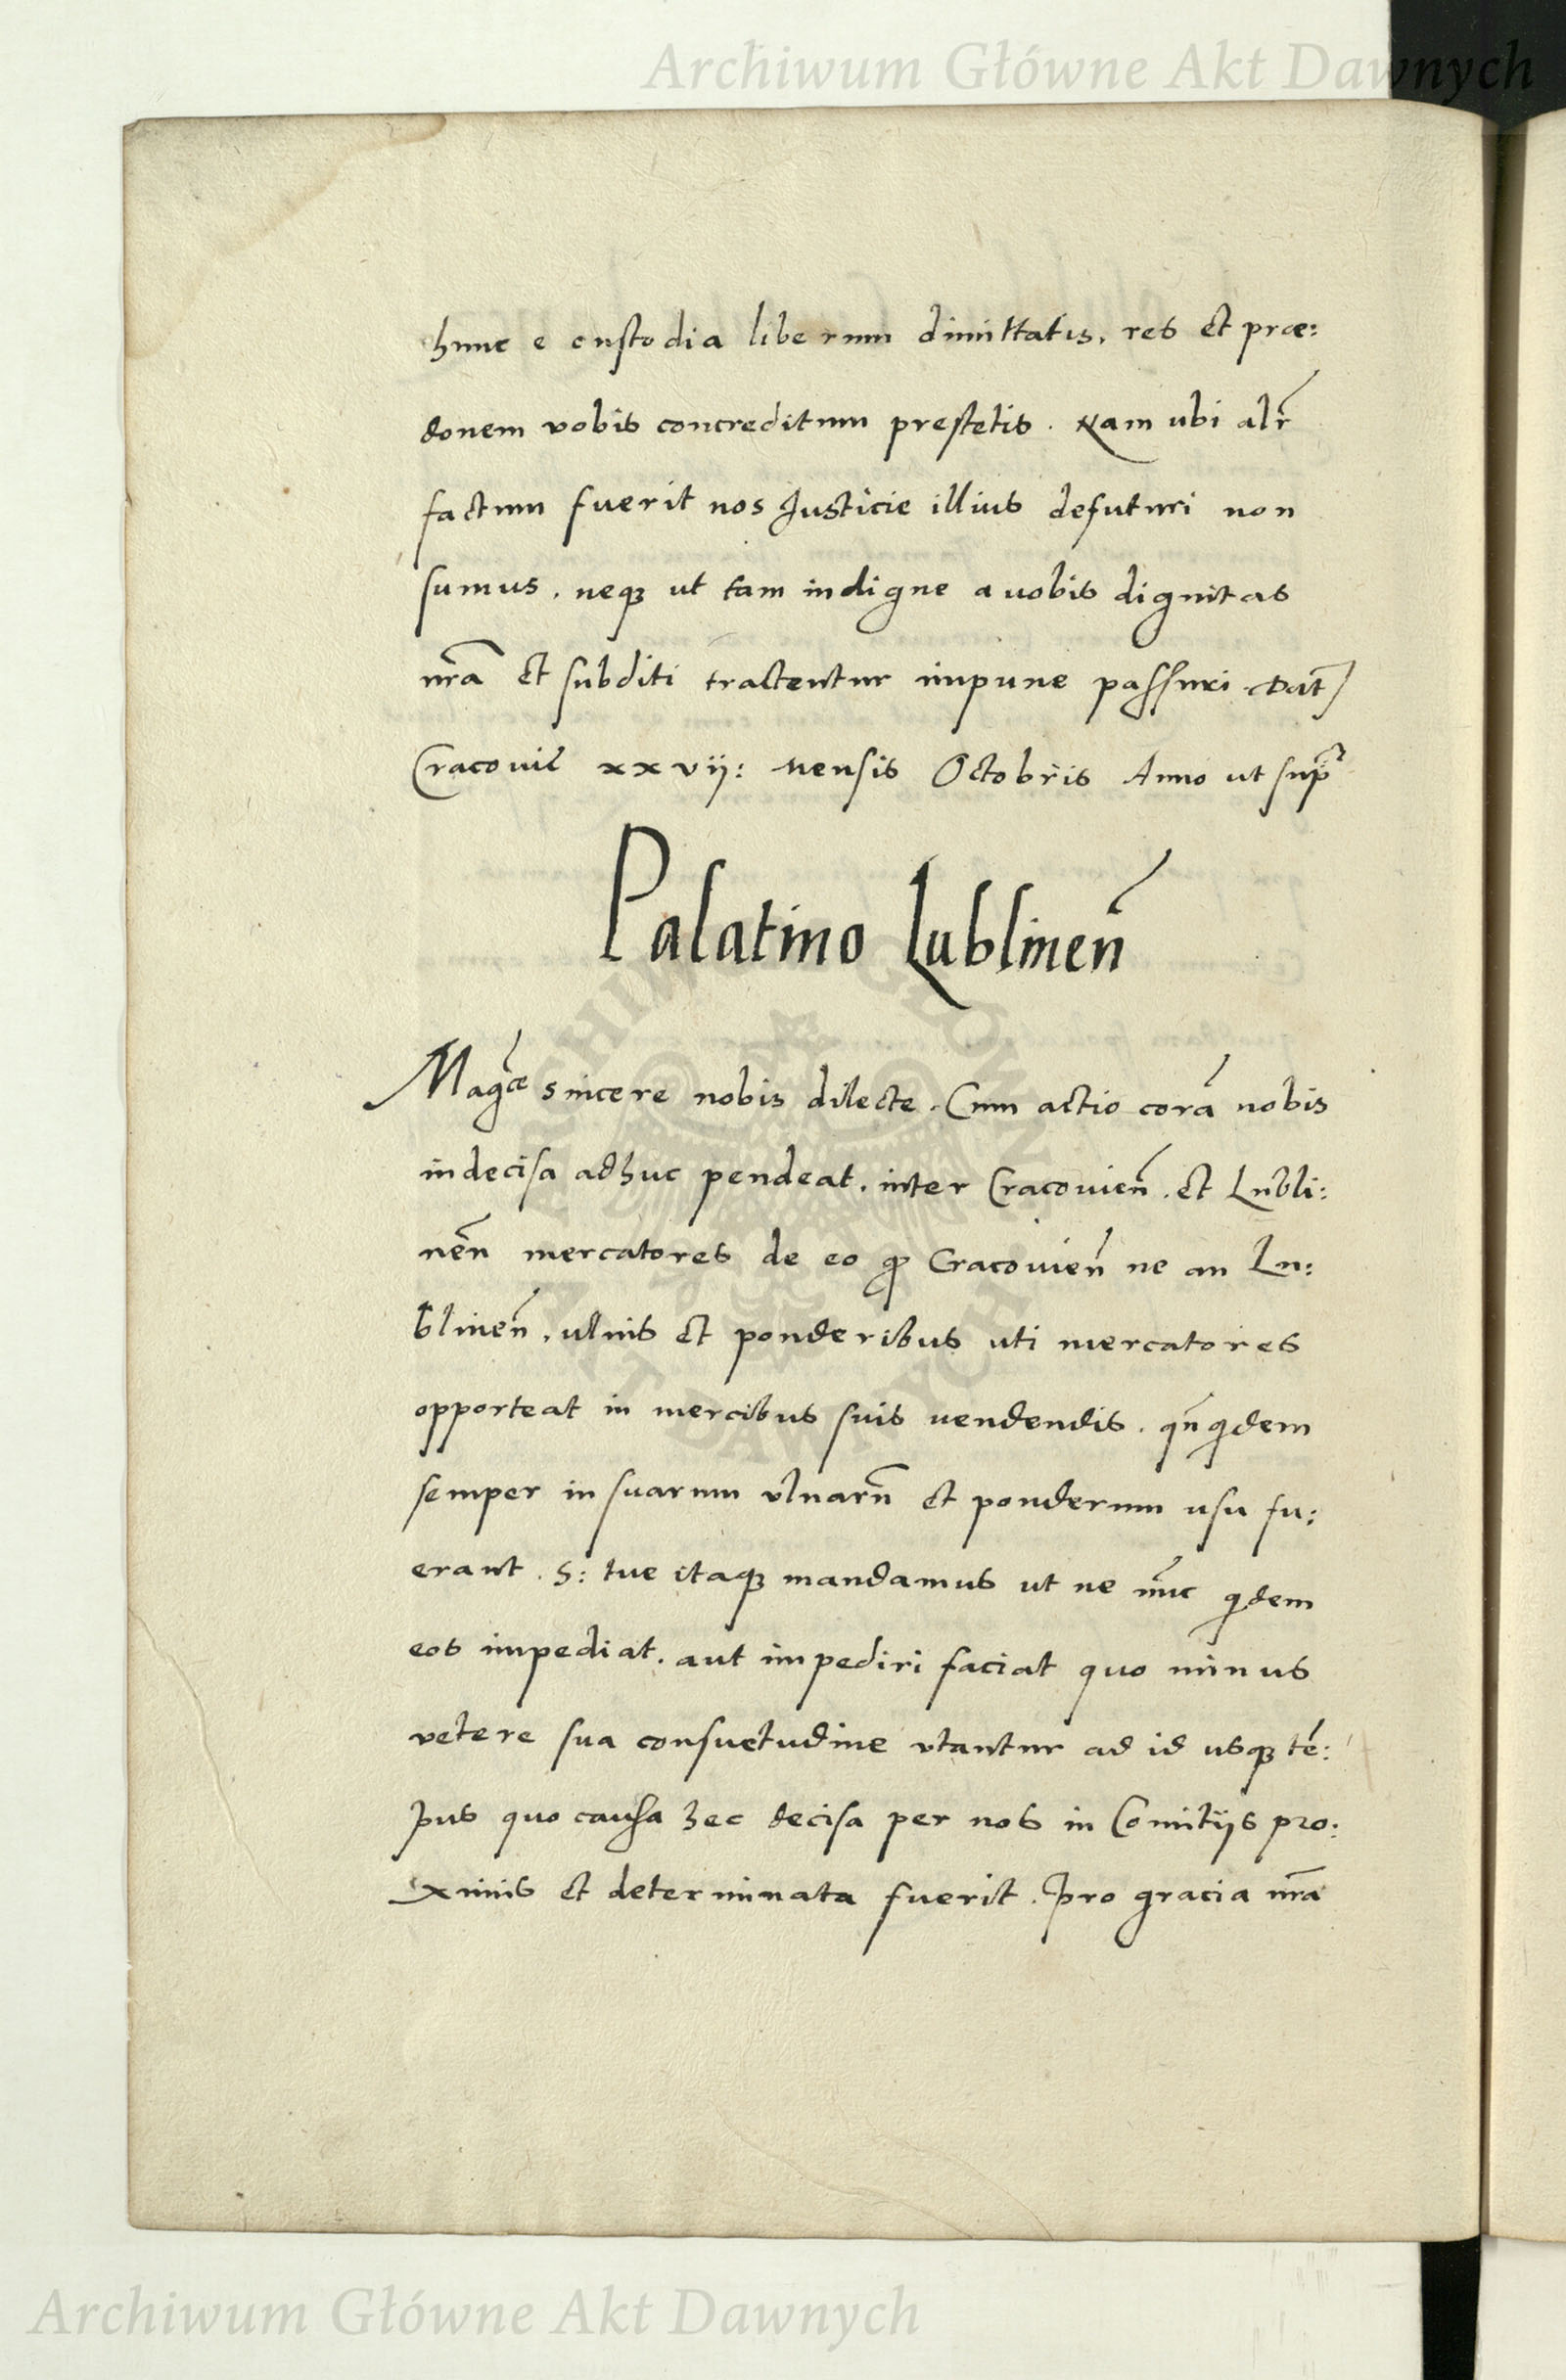 Archiwum Główne Akt Dawnych
hunc e custodia liberum dimittatis, res et præ:
donem vobis concreditum prestetis. Nam ubi alr̃
factum fuerit nos Justicie illius defuturi non
sumus, neqꝫ ut tam indigne a vobis dignitas
nr̃a et subditi tractentur impune passuri Dat̃
Cracovie xxvii: mensis Octobris Anno ut sup̃
Palatino Lublineñ
Mag̃ce sincere nobis dilecte. Cum actio corã nobis
indecisa adhuc pendeat, inter Cracovieñ. et Lubli:
nẽn mercatores de eo ꝙ Cracovieñ ne an Lu:
blineñ, ulnis et ponderibus uti mercatores
opporteat in mercibus suis vendendis. qñ qidem
semper in suarum ulnarũ et ponderum usu fu:
erant. S: tue itaqꝫ mandamus ut ne nũc qidem
eos impediat, aut impediri faciat quo minus
vetere sua consuetudine utantur ad id usqꝫ tẽ:
pus quo causa hec decisa per nos in Comitiis pro:
ximis et determinata fuerit. Pro gracia nr̃a
ARCHIWUM GŁÓWNE AKT DAWNYCH
Archiwum Główne Akt Dawnych